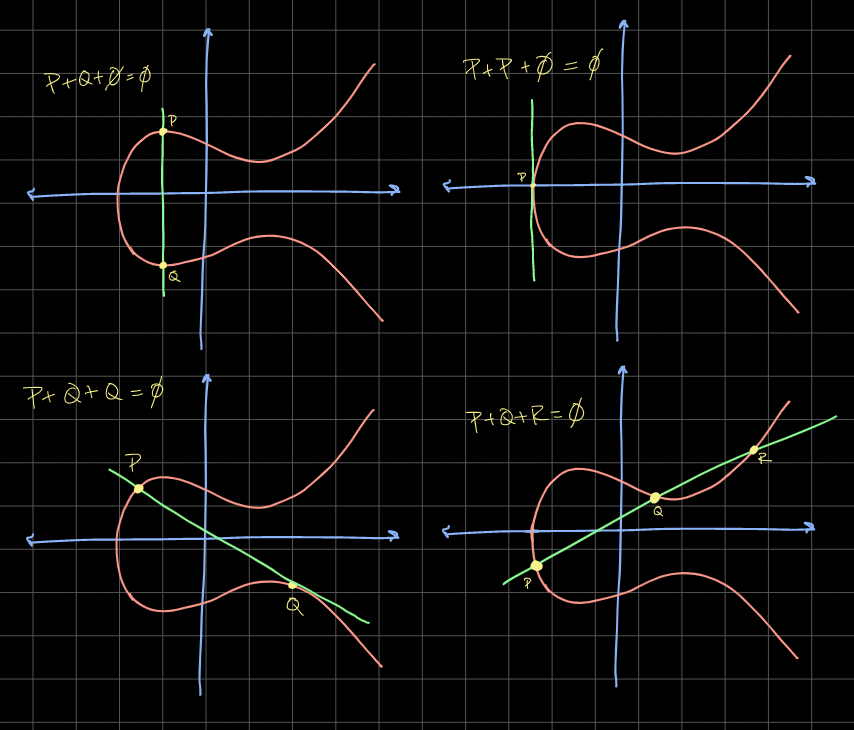 P+Q+∅=∅
P
Q
P+P+∅=∅
P
P+Q+Q=∅
P
Q
P+Q+R=∅
R
Q
P